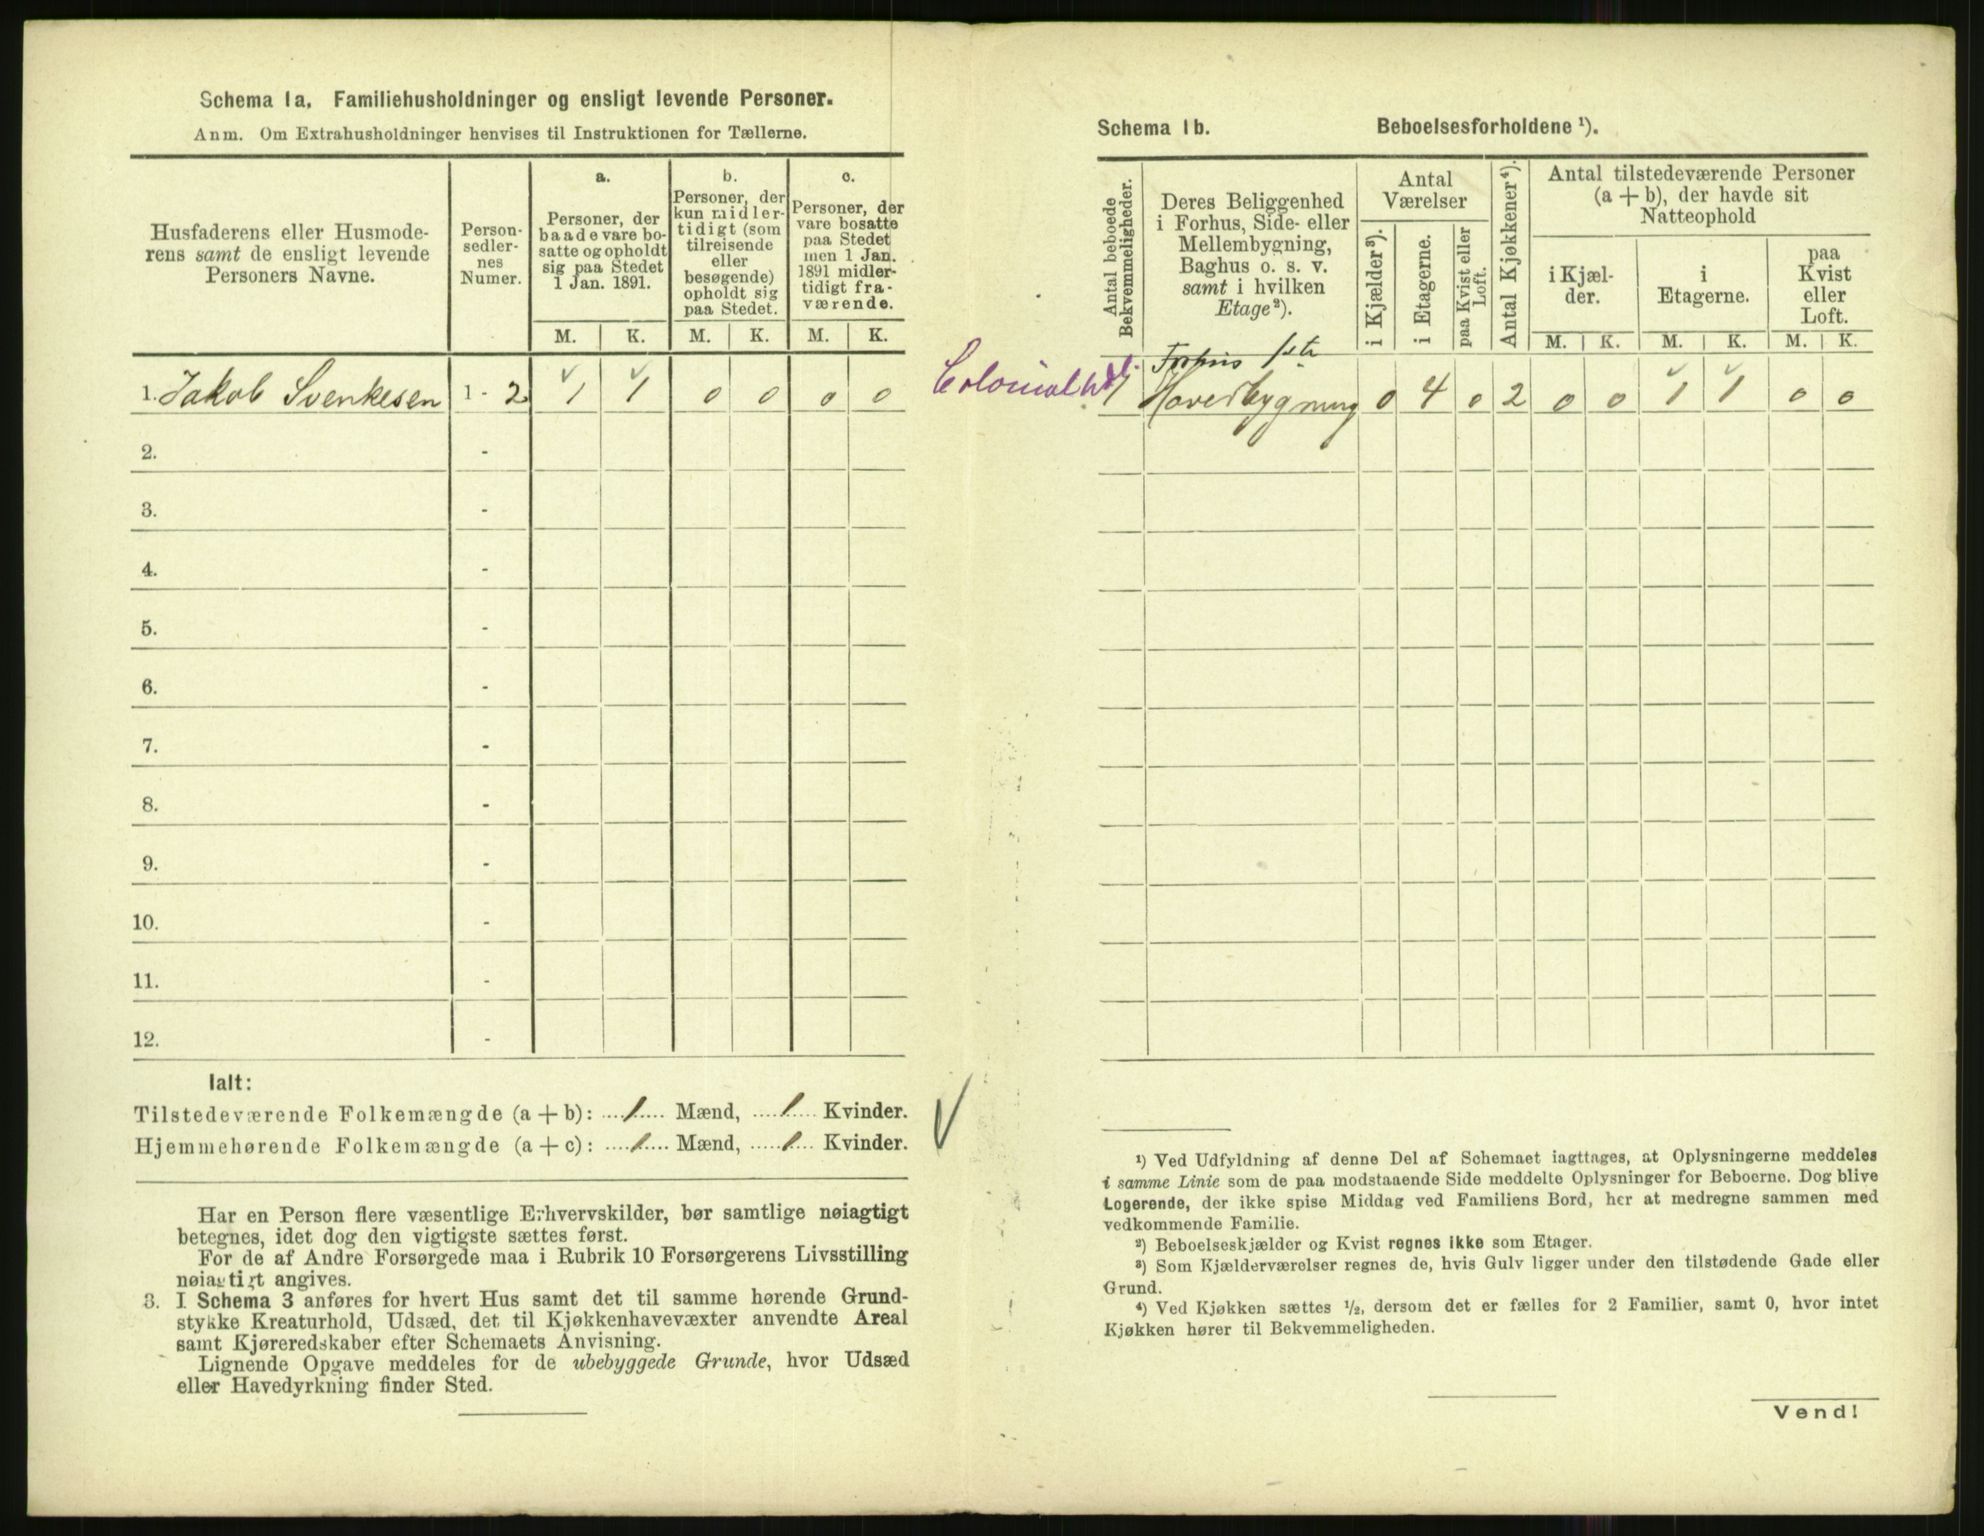 Schema 1a. Familiehusholdninger og ensligt levende Personer.
Anm. Om Extrahusholdninger henvises til Instruktionen for Tællerne.
Husfaderens eller Husmode-
rens samt de ensligt levende
Personers Navne.
Person-
sedler-
nes
Numer.
a.
Personer, der
baade vare bo-
satte og opholdt
sig paa Stedet
1 Jan. 1891.
b.
Personer, der
kun midler-
tidigt (som
tilreisende
eller
besøgende)
opholdt sig
paa Stedet.
c.
Personer, der
vare bosatte
paa Stedet
men 1 Jan.
1891 midler-
tidigt fra-
værende.
M. K. M. K. M. K.
1. Jakob Svenkesen 1 - 2 1 1 0 0 0 0
2. -
3. -
4. -
5. -
6. -
7. -
8. -
9. -
10. -
11. -
12. -
Ialt:
Tilstedeværende Folkemængde (a + b): 1 Mænd, 1 Kvinder.
Hjemmehørende Folkemængde (a + c): 1 Mænd, 1 Kvinder.
Har en Person flere væsentlige Erhvervskilder, bør samtlige nøiagtigt
betegnes, idet dog den vigtigste sættes først.
For de af Andre Forsørgede maa i Rubrik 10 Forsørgerens Livsstilling
nøiagtigt angives.
3. I Schema 3 anføres for hvert Hus samt det til samme hørende Grund-
stykke Kreaturhold, Udsæd, det til Kjøkkenhavevæxter anvendte Areal
samt Kjøreredskaber efter Schemaets Anvisning.
Lignende Opgave meddeles for de ubebyggede Grunde, hvor Udsæd
eller Havedyrkning finder Sted.
Schema 1b. Beboelsesforholdene ¹).
Antal beboede
Bekvemmeligheder.
Deres Beliggenhed
i Forhus, Side- eller
Mellembygning,
Baghus o. s. v.
samt i hvilken
Etage²).
Antal
Værelser
i Kjælder³).
i Etagerne.
paa Kvist eller
Loft.
Antal Kjøkkener⁴).
Antal tilstedeværende Personer
(a + b), der havde sit
Natteophold
i Kjæl-
der.
i
Etagerne.
paa
Kvist
eller
Loft.
M. K. M. K. M. K.
Forhus 1ste
Hovedbygning 0 4 0 2 0 0 1 1 0 0
¹) Ved Udfyldning af denne Del af Schemaet iagttages, at Oplysningerne meddeles
i samme Linie som de paa modstaaende Side meddelte Oplysninger for Beboerne. Dog blive
Logerende, der ikke spise Middag ved Familiens Bord, her at medregne sammen med
vedkommende Familie.
²) Beboelseskjælder og Kvist regnes ikke som Etager.
³) Som Kjælderværelser regnes de, hvis Gulv ligger under den tilstødende Gade eller
Grund.
⁴) Ved Kjøkken sættes ½, dersom det er fælles for 2 Familier, samt 0, hvor intet
Kjøkken hører til Bekvemmeligheden.
Vend!